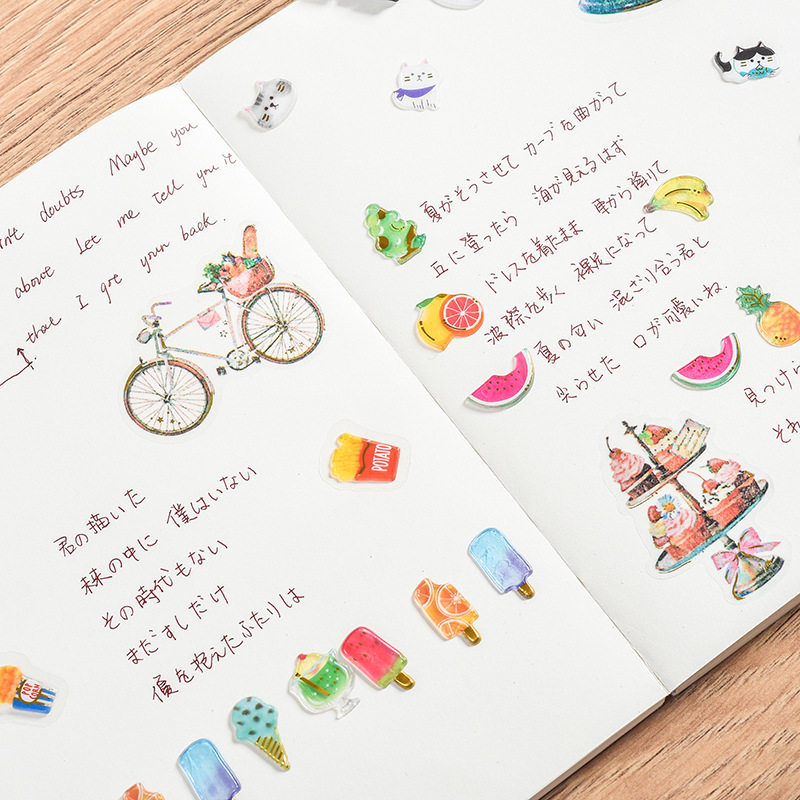 doubts Maybe you
above Let me tell you it
that I got your back.
POTATO
君の描いた
未来の中に 僕はいない
その時代もない
まだすしだけ
優を抱えたふたりは
POP CORN
夏がそうさせて カーブを曲がって
丘に登ったら 海が見えるはず
ドレスを着たまま 車から降りて
波際を歩く 裸足になって
夏の匂い 混ざり合う君と
尖らせた 口が可愛いね
見つけら
それ